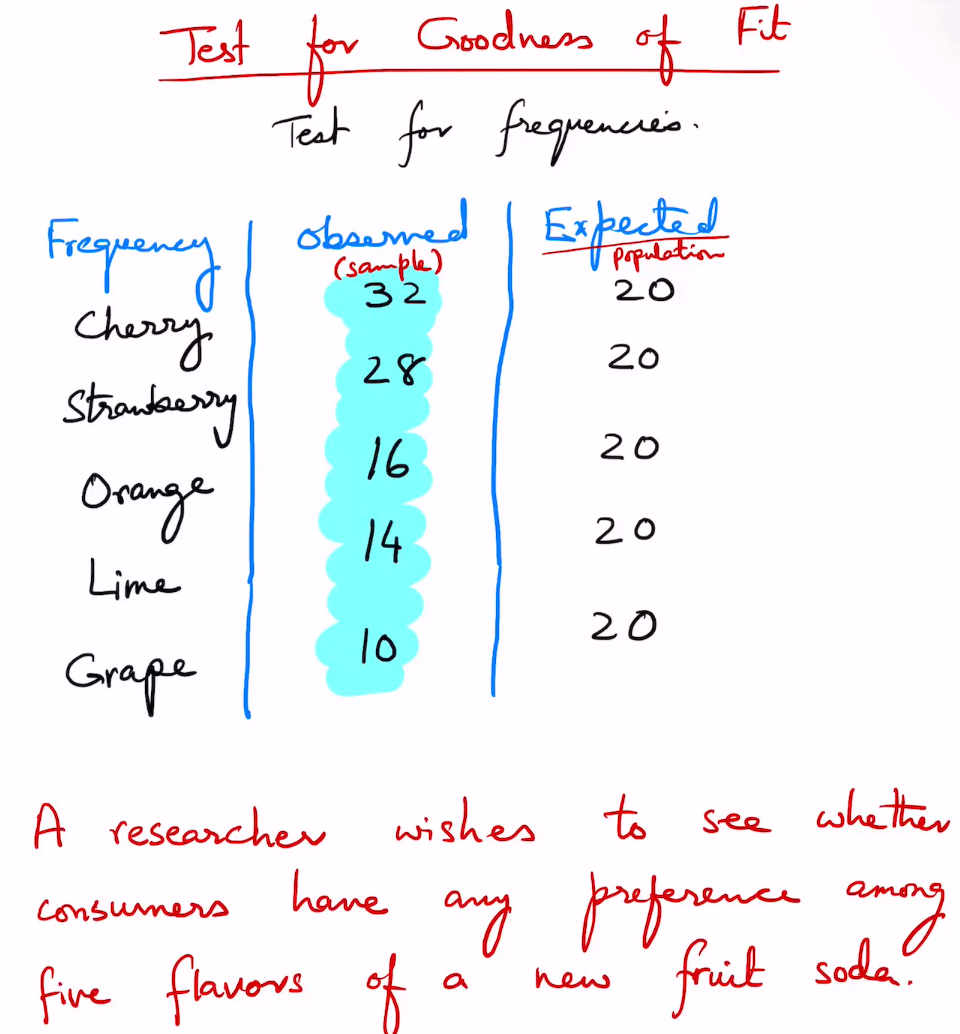 Test for Goodness of Fit
Test for frequencies.
Frequency observed Expected
(sample) population
Cherry 32 20
Strawberry 28 20
Orange 16 20
Lime 14 20
Grape 10 20
A researcher wishes to see whether
consumers have any preference among
five flavors of a new fruit soda.